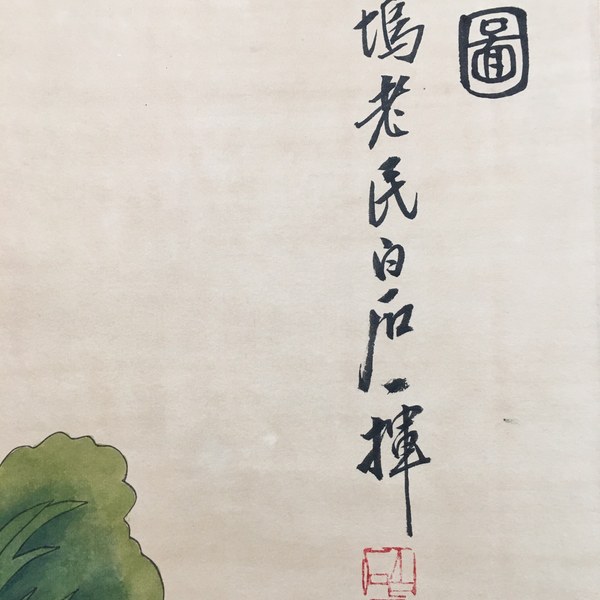 圖
塢老民白石一揮